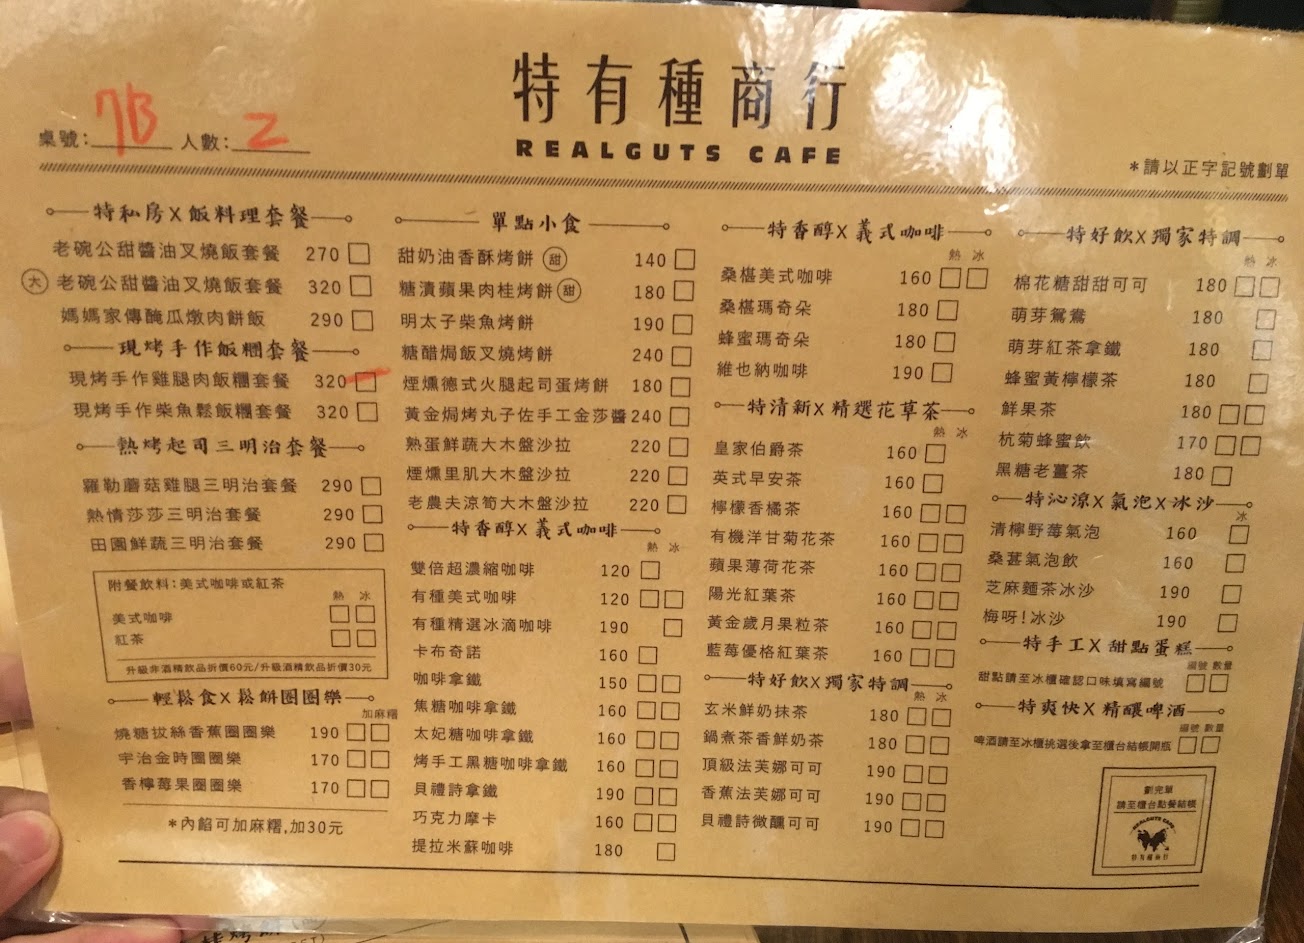 特有種商行
REALGUTS CAFE
桌號: 7B 人數: 2
*請以正字記號劃單
特私房X飯料理套餐
老碗公甜醬油叉燒飯套餐 270
大 老碗公甜醬油叉燒飯套餐 320
媽媽家傳醃瓜燉肉餅飯 290
現烤手作飯糰套餐
現烤手作雞腿肉飯糰套餐 320
現烤手作柴魚鬆飯糰套餐 320
熱烤起司三明治套餐
羅勒蘑菇雞腿三明治套餐 290
熱情莎莎三明治套餐 290
田園鮮蔬三明治套餐 290
附餐飲料:美式咖啡或紅茶
熱 冰
美式咖啡
紅茶
升級非酒精飲品折價60元/升級酒精飲品折價30元
輕鬆食X鬆餅圈圈樂
加麻糬
燒糖拔絲香蕉圈圈樂 190
宇治金時圈圈樂 170
香檸莓果圈圈樂 170
*內餡可加麻糬,加30元
單點小食
甜奶油香酥烤餅 甜 140
糖漬蘋果肉桂烤餅 甜 180
明太子柴魚烤餅 190
糖醋焗飯叉燒烤餅 240
煙燻德式火腿起司蛋烤餅 180
黃金焗烤丸子佐手工金莎醬 240
熟蛋鮮蔬大木盤沙拉 220
煙燻里肌大木盤沙拉 220
老農夫涼筍大木盤沙拉 220
特香醇X義式咖啡
熱 冰
雙倍超濃縮咖啡 120
有種美式咖啡 120
有種精選冰滴咖啡 190
卡布奇諾 160
咖啡拿鐵 150
焦糖咖啡拿鐵 160
太妃糖咖啡拿鐵 160
烤手工黑糖咖啡拿鐵 160
貝禮詩拿鐵 190
巧克力摩卡 160
提拉米蘇咖啡 180
特香醇X義式咖啡
熱 冰
桑椹美式咖啡 160
桑椹瑪奇朵 180
蜂蜜瑪奇朵 180
維也納咖啡 190
特清新X精選花草茶
熱 冰
皇家伯爵茶 160
英式早安茶 160
檸檬香橘茶 160
有機洋甘菊花茶 180
蘋果薄荷花茶 160
陽光紅葉茶 160
黃金歲月果粒茶 160
藍莓優格紅葉茶 160
特好飲X獨家特調
熱 冰
玄米鮮奶抹茶 180
鍋煮茶香鮮奶茶 180
頂級法芙娜可可 190
香蕉法芙娜可可 190
貝禮詩微醺可可 190
特好飲X獨家特調
熱 冰
棉花糖甜甜可可 180
萌芽鴛鴦 180
萌芽紅茶拿鐵 180
蜂蜜黃檸檬茶 180
鮮果茶 180
杭菊蜂蜜飲 170
黑糖老薑茶 180
特沁涼X氣泡X冰沙
冰
清檸野莓氣泡 160
桑葚氣泡飲 160
芝麻麵茶冰沙 190
梅呀!冰沙 190
特手工X甜點蛋糕
編號 數量
甜點請至冰櫃確認口味填寫編號
特爽快X精釀啤酒
編號 數量
啤酒請至冰櫃挑選後拿至櫃台結帳開瓶
劃完單
請至櫃台點餐結帳
REALGUTS CAFE
特有種商行